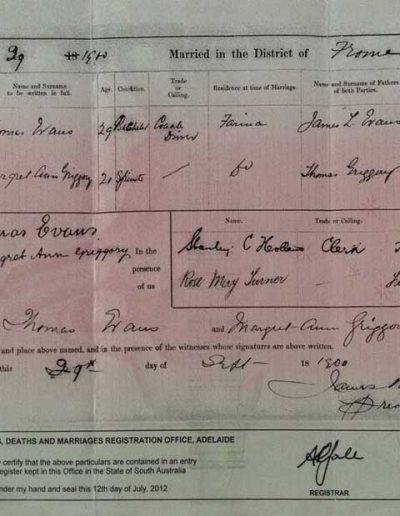 29 18 1900 Married in the District of Frome
Name and Surname to be written in full. Age. Condition. Trade or Calling. Residence at time of Marriage. Name and Surname of Fathers of both Parties.
Thomas Evans 29 Bachelor Coach Driver Farina James L Evans
Margret Ann Griggory 21 Spinster / Do Thomas Griggory
Thomas Evans
Margret Ann Griggory In the presence of us
Name. Trade or Calling.
Stanley C Clerk
Rose May Turner
Thomas Evans and Margret Ann Griggory
and place above named, and in the presence of the witnesses whose signatures are above written.
this 29th day of Sept 18 1900
James
S, DEATHS AND MARRIAGES REGISTRATION OFFICE, ADELAIDE
y certify that the above particulars are contained in an entry
register kept in this Office in the State of South Australia
nder my hand and seal this 12th day of July, 2012
REGISTRAR